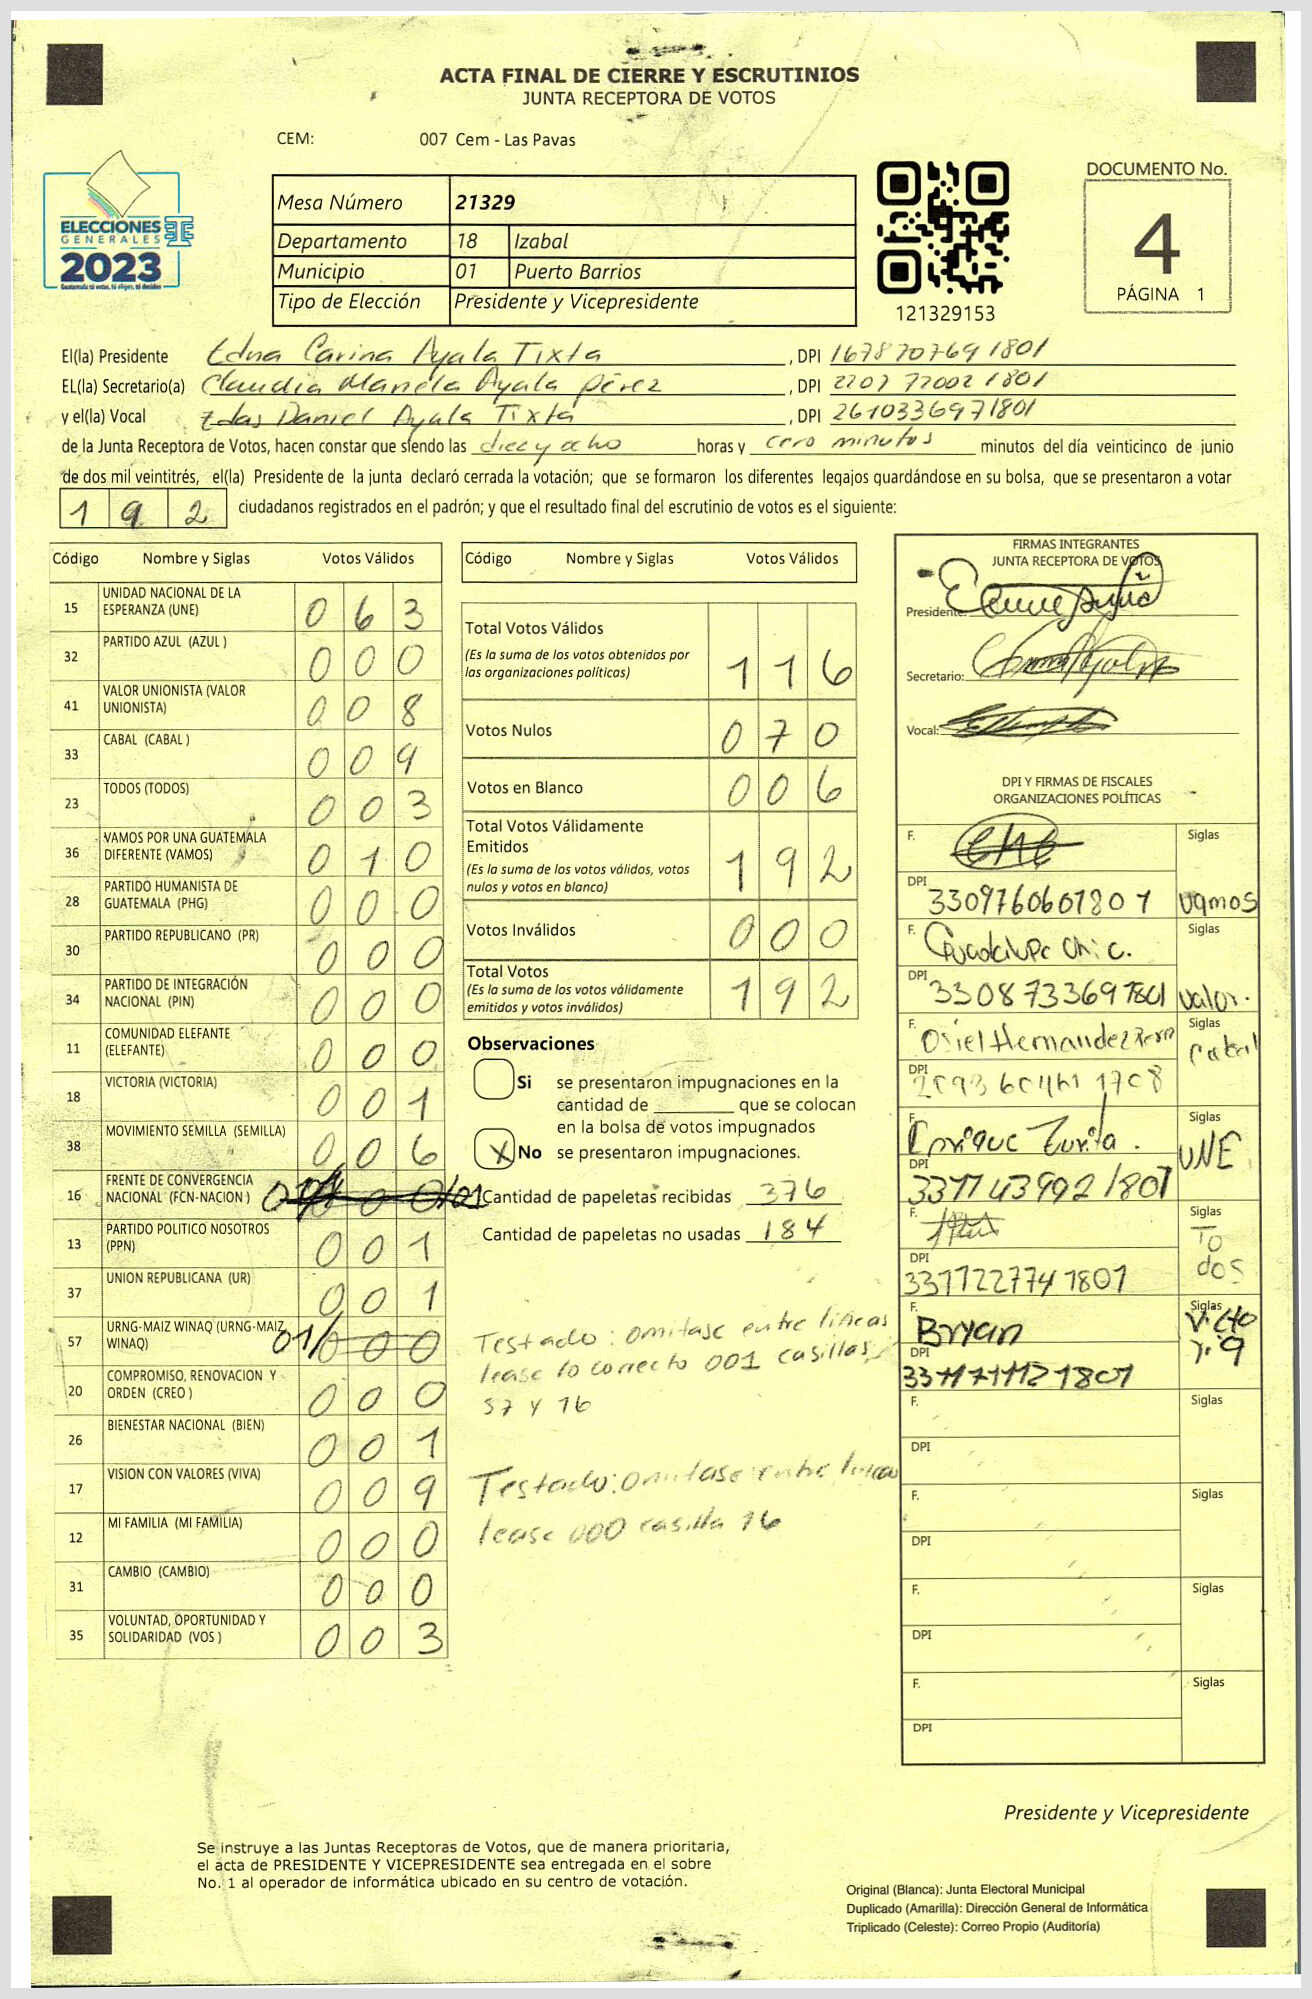 ACTA FINAL DE CIERRE Y ESCRUTINIOS
JUNTA RECEPTORA DE VOTOS
CEM: 007 Cem - Las Pavas
ELECCIONES
GENERALES
2023
Guatemala tú votas, tú eliges, tú decides
Mesa Número 21329
Departamento 18 Izabal
Municipio 01 Puerto Barrios
Tipo de Elección Presidente y Vicepresidente
121329153
DOCUMENTO No.
4
PÁGINA 1
El(la) Presidente Edna Carina Ayala Tixta, DPI 1678707691801
EL(la) Secretario(a) Claudia Mariela Ayala Pérez, DPI 2207720021801
y el(la) Vocal Daniel Ayala Tixta, DPI 2610336971801
de la Junta Receptora de Votos, hacen constar que siendo las diecyocho horas y cero minutos minutos del día veinticinco de junio
de dos mil veintitrés, el(la) Presidente de la junta declaró cerrada la votación; que se formaron los diferentes legajos guardándose en su bolsa, que se presentaron a votar
192 ciudadanos registrados en el padrón; y que el resultado final del escrutinio de votos es el siguiente:
Código Nombre y Siglas Votos Válidos
15 UNIDAD NACIONAL DE LA ESPERANZA (UNE) 0 6 3
32 PARTIDO AZUL (AZUL ) 0 0 0
41 VALOR UNIONISTA (VALOR UNIONISTA) 0 0 8
33 CABAL (CABAL ) 0 0 9
23 TODOS (TODOS) 0 0 3
36 VAMOS POR UNA GUATEMALA DIFERENTE (VAMOS) 0 1 0
28 PARTIDO HUMANISTA DE GUATEMALA (PHG) 0 0 0
30 PARTIDO REPUBLICANO (PR) 0 0 0
34 PARTIDO DE INTEGRACIÓN NACIONAL (PIN) 0 0 0
11 COMUNIDAD ELEFANTE (ELEFANTE) 0 0 0
18 VICTORIA (VICTORIA) 0 0 1
38 MOVIMIENTO SEMILLA (SEMILLA) 0 0 6
16 FRENTE DE CONVERGENCIA NACIONAL (FCN-NACION ) 0 0 0
13 PARTIDO POLITICO NOSOTROS (PPN) 0 0 1
37 UNION REPUBLICANA (UR) 0 0 1
57 URNG-MAIZ WINAQ (URNG-MAIZ WINAQ) 01/ 0 0 0
20 COMPROMISO, RENOVACION Y ORDEN (CREO ) 0 0 0
26 BIENESTAR NACIONAL (BIEN) 0 0 1
17 VISION CON VALORES (VIVA) 0 0 9
12 MI FAMILIA (MI FAMILIA) 0 0 0
31 CAMBIO (CAMBIO) 0 0 0
35 VOLUNTAD, OPORTUNIDAD Y SOLIDARIDAD (VOS ) 0 0 3
Código Nombre y Siglas Votos Válidos
Total Votos Válidos
(Es la suma de los votos obtenidos por las organizaciones políticas) 1 1 6
Votos Nulos 0 7 0
Votos en Blanco 0 0 6
Total Votos Válidamente Emitidos
(Es la suma de los votos válidos, votos nulos y votos en blanco) 1 9 2
Votos Inválidos 0 0 0
Total Votos
(Es la suma de los votos válidamente emitidos y votos inválidos) 1 9 2
Observaciones
Si se presentaron impugnaciones en la
cantidad de ________ que se colocan
en la bolsa de votos impugnados
X No se presentaron impugnaciones.
Cantidad de papeletas recibidas 376
Cantidad de papeletas no usadas 184
Testado: omitase entre lineas
lease lo correcto 001 casillas
57 y 16
Testado: omitase entre lineas
lease 000 casilla 16
FIRMAS INTEGRANTES
JUNTA RECEPTORA DE VOTOS
Presidente:
Secretario:
Vocal:
DPI Y FIRMAS DE FISCALES
ORGANIZACIONES POLÍTICAS
F. Siglas
DPI 3309760601801 vamos
F. Guadalupe Chic. Siglas
DPI 3308733691801 valor.
F. Osiel Hernandez Siglas Cabal
DPI
F. Enrique Zurita. Siglas UNE
DPI 3311439921801
F. Siglas TO
DPI dos
3311227741801
F. Bryan Siglas
DPI 3311711121801
F. Siglas
DPI
F. Siglas
DPI
F. Siglas
DPI
F. Siglas
DPI
Presidente y Vicepresidente
Se instruye a las Juntas Receptoras de Votos, que de manera prioritaria,
el acta de PRESIDENTE Y VICEPRESIDENTE sea entregada en el sobre
No. 1 al operador de informática ubicado en su centro de votación.
Original (Blanca): Junta Electoral Municipal
Duplicado (Amarilla): Dirección General de Informática
Triplicado (Celeste): Correo Propio (Auditoría)